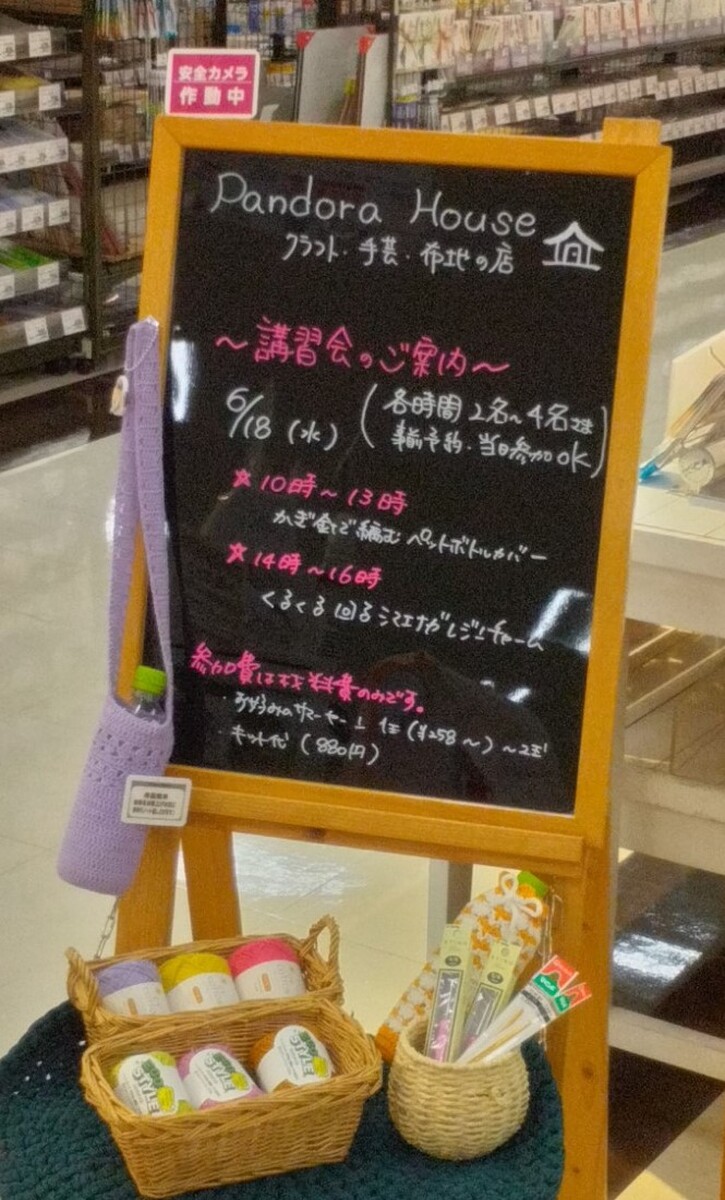 安全カメラ
作動中
Pandora House
クラフト・手芸・布地の店
～講習会のご案内～
6/18(水)
(各時間2名～4名さま
事前予約・当日参加OK)
☆10時～13時
かぎ針で編むペットボトルカバー
☆14時～16時
くるくる回るシマエナガレジンチャーム
参加費は材料費のみです。
・お好みのサマーヤーン 1玉(¥258～)～2玉
・キット代(880円)